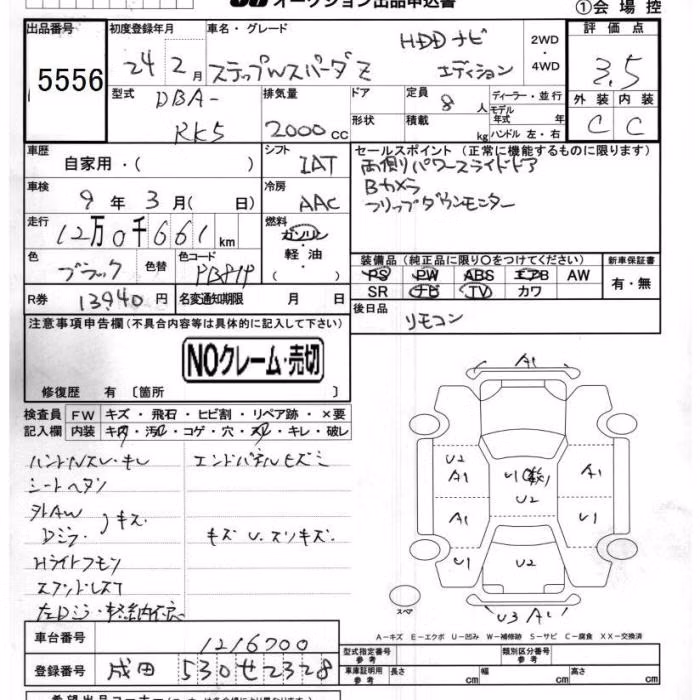 オークション出品申込書
①会場控
出品番号
5556
初度登録年月
24年2月
車名・グレード
ステップWスパーダZ
HDDナビ
エディション
2WD
・
4WD
評価点
3.5
外装 内装
C C
型式
DBA-
RK5
排気量
2000cc
ドア
形状
定員
8人
積載
kg
ディーラー・並行
モデル
年式 年
ハンドル 左・右
車歴
自家用・( )
シフト
IAT
車検
9年3月( 日)
冷房
AAC
走行
12万0千661km
燃料
ガソリン
・
軽油
・
( )
色
ブラック
色替
色コード
R券
13940円
名変通知期限 月 日
セールスポイント(正常に機能するものに限ります)
両側パワースライドドア
Bカメラ
フリップダウンモニター
装備品(純正品に限り○をつけてください)
PS PW ABS エアB AW
SR ナビ TV カワ
新車保証書
有・無
後日品
リモコン
注意事項申告欄(不具合内容等は具体的に記入して下さい)
NOクレーム・売切
修復歴 有〔箇所 〕
検査員
記入欄
FW キズ・飛石・ヒビ割・リペア跡・×要
内装 キズ・汚レ・コゲ・穴・スレ・キレ・破レ
ハンドルスレ・キレ
シートヘタリ
外AW
Dミラー
キズ
Hライトクモリ
エンドパネルキズミ
キズ U.スリキズ.
A1
U2
A1
A1
U10
U2
A1
U1
U2
U3 A1
スペア
A-キズ E-エクボ U-凹み W-補修跡 S-サビ C-腐食 XX-交換済
車台番号
1216700
登録番号
成田 530 せ 2328
型式指定番号
参考
類別区分番号
参考
車庫証明用
参考
長さ cm
幅 cm
高さ cm